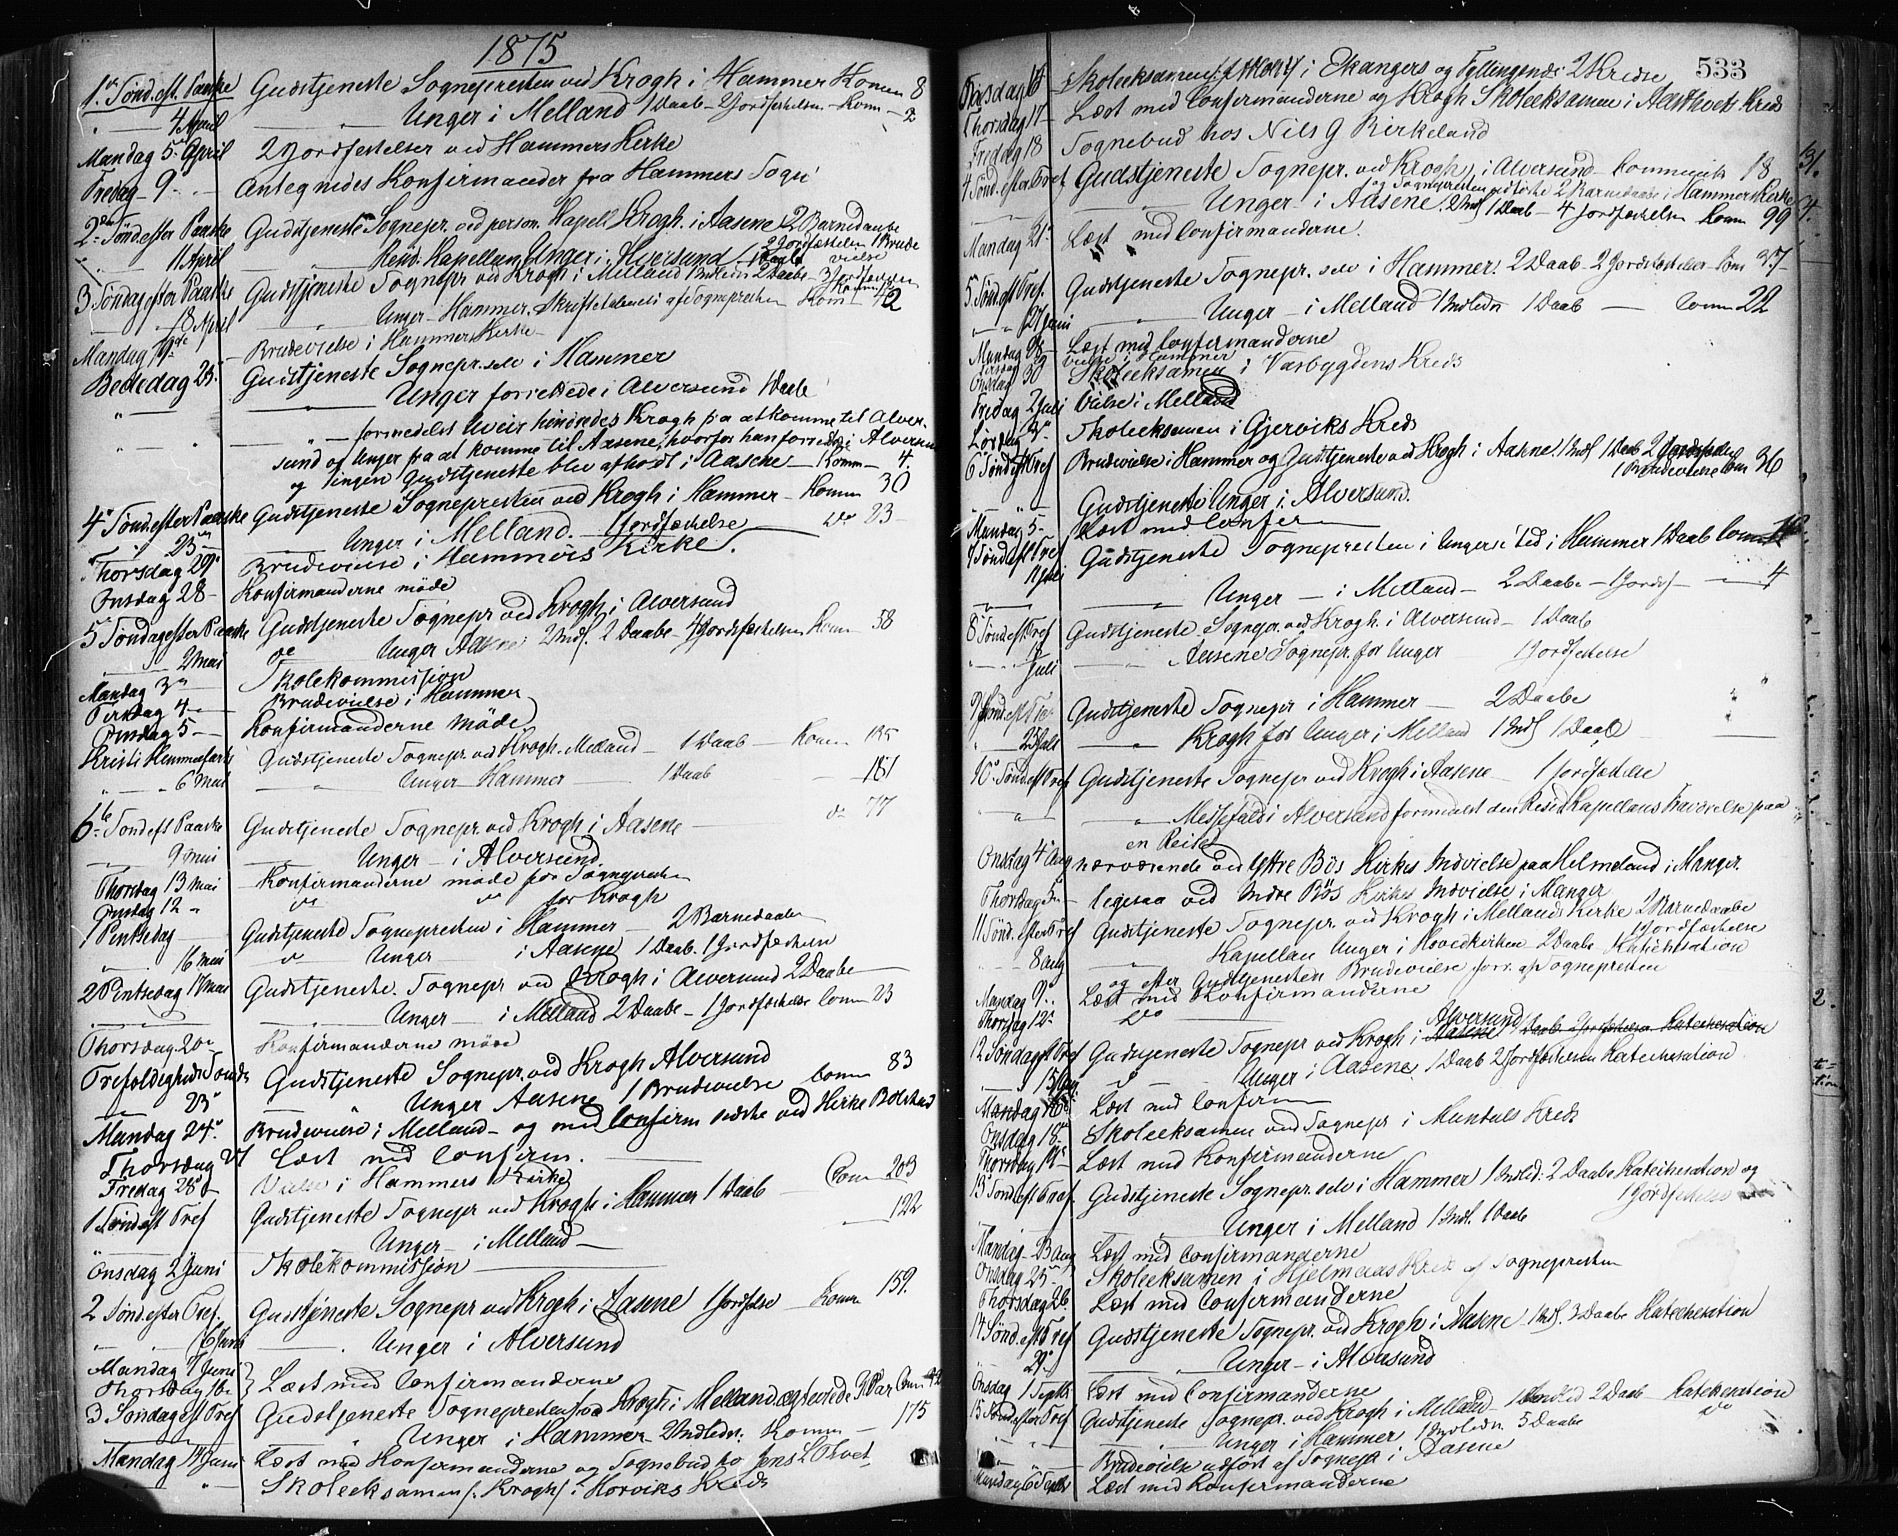 1875
1ste Sønd. eft. Paaske Gudstjeneste Sognepresten ved Krogh i Hammer Komm 8
" — 4 April — Unger i Melland 1 Daab – 2 Jordfestelser – Kom – 2
Mandag 5te April 2 Jordfestelser ved Hammers Kirke
Fredag 9 – Antegnedes Konfirmander fra Hammers Sogn
2den Sønd efter Paaske Gudstjeneste Sognepr. ved person. Kapell Krogh i Aasene 2 Barnedaabe
11 April Resid. Kapellan Unger i Alversund 1 Daab 2 Jordfæstelser 1 Brudevielse
3 Søndag efter Paaske Gudstjeneste Sognepr ved Krogh i Melland 1 Indledn 2 Daabe – 3 Jordfæst
" — 18 April " Unger – Hammer. Skriftetalensti af Sognepresten Kom – 42
Mandag 19de – Brudevielse i Hammers Kirke
Bededag 23 Gudstjeneste Sognepr. selv i Hammer
" — Unger forrettede i Alversund 1 Daab
" — formedelst Uveir hindredes Krogh fra at komme til Alver-
sund og Unger fra at komme til Aasene, hvorfor han forrettede i Alversund
og ingen Gudstjeneste blev afholdt i Aasene – Komm – 4.
4de Sønd efter Paaske Gudstjeneste Sognepresten ved Krogh i Hammer – Komm 30
25 — Unger i Melland. 1 Jordfæstelse — Do 23
Thorsdag 29de Brudevielse i Hammers Kirke.
Onsdag 28 – Konfirmanderne møde
5 Søndag efter Paaske Gudstjeneste Sognepr ved Krogh i Alversund
2 Mai do Unger Aasene 2 Indl. 2 Daabe – 4 Jordfæstelser Kom 58
Mandag 3 Skolekommission
Tirsdag 4 – Brudevielse i Hammer
Onsdag 5 – Konfirmanderne møde
Kristi Himmelfarts Gudstjeneste Sognepr ved Krogh. Melland – 1 Daab – Kom 135
" – " 6 Mai " Unger Hammer — 1 Daab — 181
6te Sønd eft Paaske Gudstjeneste Sognepr ved Krogh i Aasene — do 77
" 9 Mai — Unger – i Alversund
Thorsdag 13 Mai Konfirmanderne møde for Sognepresten
Onsdag 12 " do do for Krogh
1 Pintsedag Gudstjeneste Sognepresten i Hammer – 2 Barnedaabe
" 16 Mai " Unger i Aasene 1 Daab. 1 Jordfæstelse
2 Pintsedag 17 Mai Gudstjeneste. Sognepr ved Krogh i Alversund 2 Daabe
— Unger — i Melland 2 Daabe – 1 Jordfæstelse Comm 23
Thorsdag 20de Konfirmanderne møde
Trefoldigheds Sønd Gudstjeneste Sognepr. ved Krogh Alversund
23 — " Unger Aasene 1 Brudevielse Comm 83
Mandag 24. Brudevielse i Melland – og med Confirm næste ved Kirke Bolstad
Thorsdag 27 Læst med Confirm.
Fredag 28 – Vielse i Hammers Kirke
1 Sønd eft Tref Gudstjeneste Sognepr ved Krogh i Hammer 1 Daab – Com 203
Unger – i Melland — 122
Onsdag 2 Juni Skolekommission
2 Sønd. efter Tref. Gudstjeneste Sognepr ved Krogh i Aasene 1 Jordfestelse – Komm 159.
" 6 Juni — Unger i Alversund
Mandag 7 Juni
Thorsdag 10de } Læst med Confirmanderne
3 Søndag eft Tref Gudstjeneste Sognepresten ved Krogh i Melland, Par Com 42
— Unger i Hammer – 2 Indledn: Komm – 175
Mandag 14 Juni Læst med Konfirmanderne og Sognebud ho Jens L
" – " Skoleeksamen /: Krogh :/ i Horviks Kreds

533
Skoleeksamen /: Krogh :/ i Ekangers og Fyllingsnes 2 Kredse
Thorsdag 17 – Læst med Confirmanderne og Krogh Skoleeksamen i Kreds
Fredag 18 Sognebud hos Nils G Birkeland
4 Sønd. efter Tref Gudstjeneste Sognepr. ved Krogh i Alversund Kommunik 18
og Sognepresten 2 Barnedaabe i Hammers Kirke
" Unger i Aasene. 2 Indl 1 Daab – 4 Jordfæstelser Komm 99
Mandag 21de Læst med Confirmanderne.
5 Sønd eft Tref. Gudstjeneste Sognepr. selv i Hammer. 2 Daab – 2 Jordfæstelser Com 37
" 27 Juni " Unger – i Melland 1 Indledn 1 Daab — Comm 22
Mandag 28 – Læst med Confirmanderne
Tirsdag 29 Vielse i Hammer
Onsdag 30 Skoleeksamen i Varbygdens Kreds
Fredag 2 Juli Vielse i Melland
Lørdag 3de Skoleeksamen i Gjerviks Kreds
6 Sønd eft Tref Brudevielse i Hammer og Gudstjeneste ved Krogh i Aasene. 1 Indl 1 Daab 2 Jordfæstelse
1 Brudevielse Com 36
Gudstjeneste Unger i Alversund.
Mandag 5 – Læst med Confirm
7 Sønd eft Tref Gudstjeneste Sognepresten i Ungers Sted i Hammer 1 Daab Com
11 Juli " Unger – i Melland – 2 Daabe – 1 Jordf – 4
8 Sønd eft Tref Gudstjeneste Sognepr. ved Krogh i Alversund – 1 Daab
Juli Aasene Sognepr. for Unger 1 Jordfestelse
9 Sønd. eft Tref Gudstjeneste Sognepr i Hammer – 2 Daabe
" 25 Juli — Krogh for Unger i Melland 1 Indl 1 Daab
10de Sønd eft Tref Gudstjeneste Sognepr ved Krogh i Aasene – 1 Jordfæstelse
" " Messefald i Alversund formedelst den Resid Kapellans Fraværelse paa
en Reise
Onsdag 4de Aug nærværende ved Ystre Bøs Kirkes Indvielse paa Helmeland i Manger.
Thorsdag 5 – ligesaa ved Indre Bös Kirkes Indvielse i Manger
11 Sønd. efter Tref Gudstjeneste Sognepr. ved Krogh i Mellands Kirke 2 Barnedaabe
1 Jordfæstelse
8 Aug " Kapellan Unger i Hovedkirken 2 Daabe Katechisation
og efter Gudstjenesten Brudevielse forr. af Sognepresten
Mandag 9. Læst med Konfirmanderne
Thorsdag 12. do
Alversund
12 Søndag eft Tref Gudstjeneste Sognepr ved Krogh i Aasene 1 Daab 2 Jordfæstelser Katechisation
" 15 Aug " Unger i Aasene, 1 Daab 2 Jordfæstelser Katechisation
Mandag 16 Læst med Confirm
Onsdag 18 Skoleeksamen ved Sognepr i Mundals Kreds
Thorsdag 19 Læst med Konfirmanderne
13 Sønd eft Tref. Gudstjeneste Sognepr. selv i Hammer 1 Indled. 2 Daabe Katechisation og
1 Jordfæstelse
" Unger i Melland 1 Indl. 1 Daab
Mandag 23 Aug Læst med Confirmanderne
Onsdag 25 Skoleeksamen i Hjelmaas Kreds af Sognepresten
Thorsdag 26 Læst med Confirmanderne
14 Sønd. eft Tref Gudstjeneste Sognepr. ved Krogh i Aasene – 1 Indl. 3 Daabe Katechesation
29de — Unger – i Alversund
Onsdag 1 Septbr Læst med Confirmanderne
15 Sønd efter Tref Gudstjeneste Sognepr. ved Krogh i Melland 1 Indled 2 Daab Katekesation
" Unger i Hammer 1 Indledn 5 Daabe do
" Brudevielse udført af Sognepr i Aasene
Mandag 6 Septbr Læst med Konfirmanderne